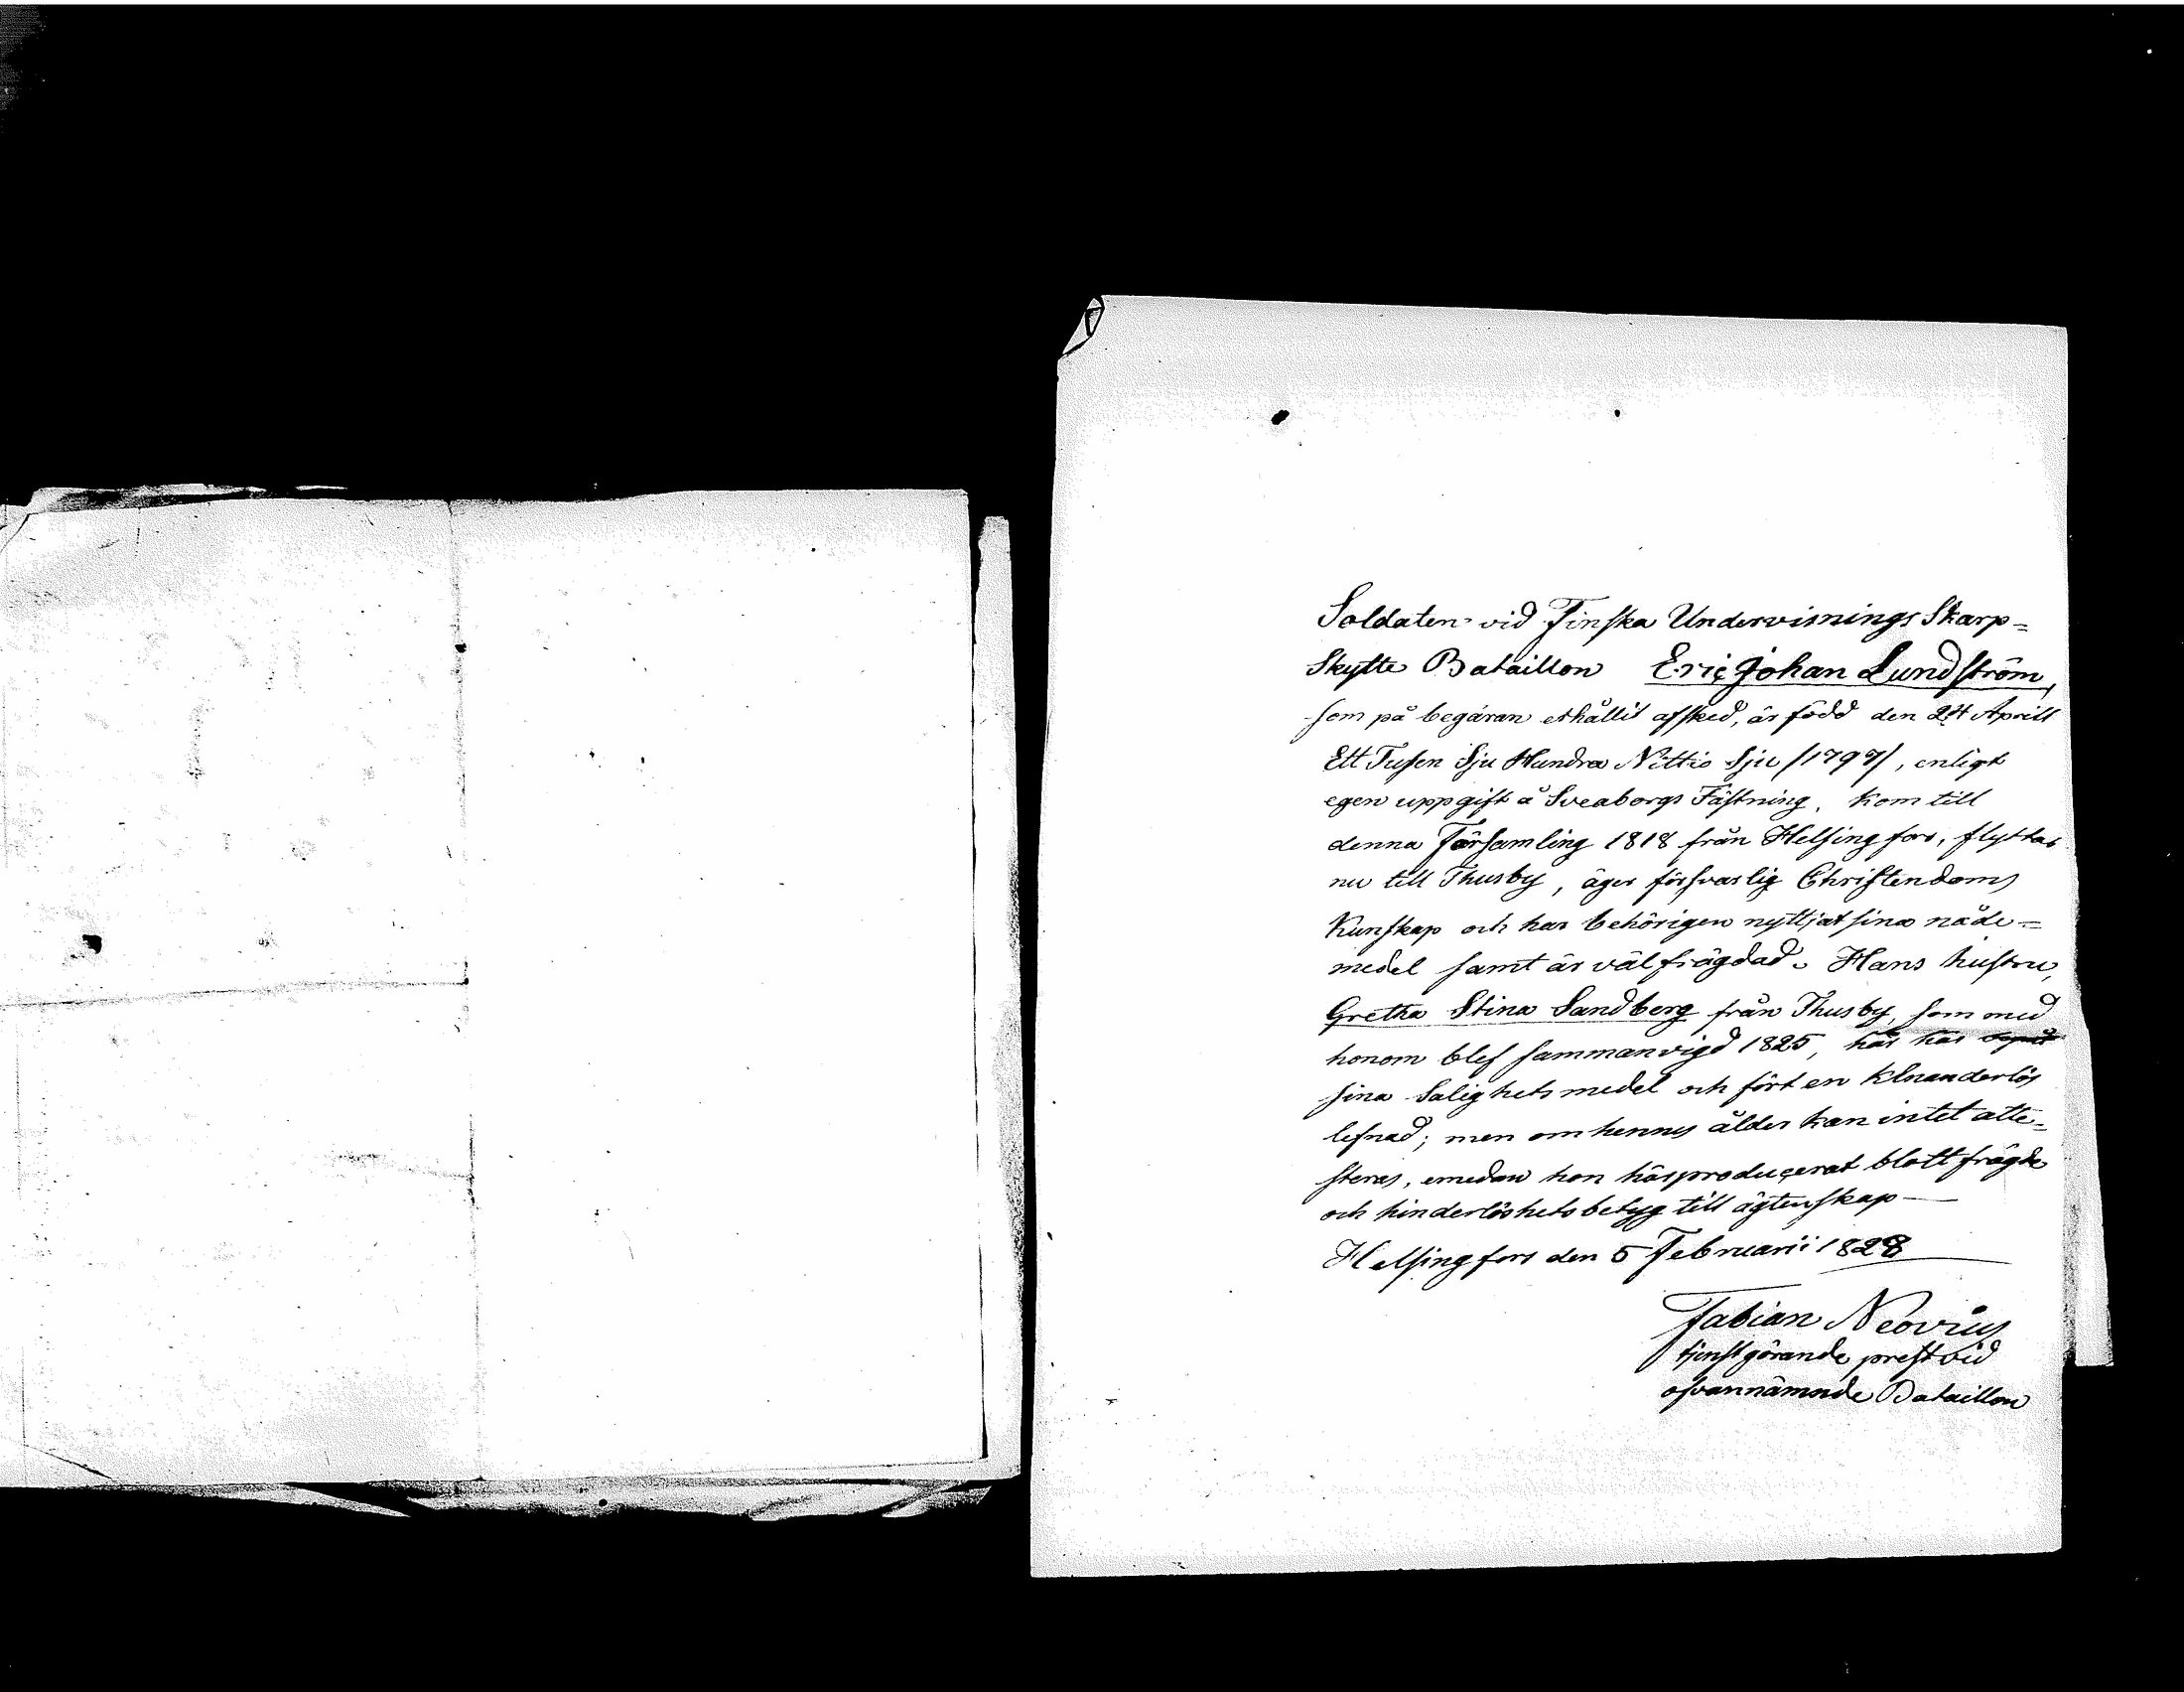 Soldaten vid Finska Undervisnings Skarp=
Skytte Bataillon Eric Johan Lundström,
som på begäran erhållit afsked, är född den 24 Aprill
Ett Tusen Sju Hundra Nittio Sju /1797/, enligt
egen uppgift å Sveaborgs Fästning, kom till
denna Församling 1818 från Helsingfors, flyttas
nu till Thusby, äger försvarlig Christendoms
Kunskap och har behörigen nyttjat sina nåde=
medel samt är välfrägdad. Hans hustru,
Gretha Stina Sandberg från Thusby, som med
honom blef sammanvigd 1825, här har
sina Salighets medel och fört en klanderlös
lefnad; men om hennes ålder kan intet atte=
steras, emedan hon här producerat blott frägde
och hinderlöshets betyg till ägtenskap —
Helsingfors den 5 Februarii 1828
Fabian Neovius
tjenstgörande prest vid
ofvannämnde Bataillon